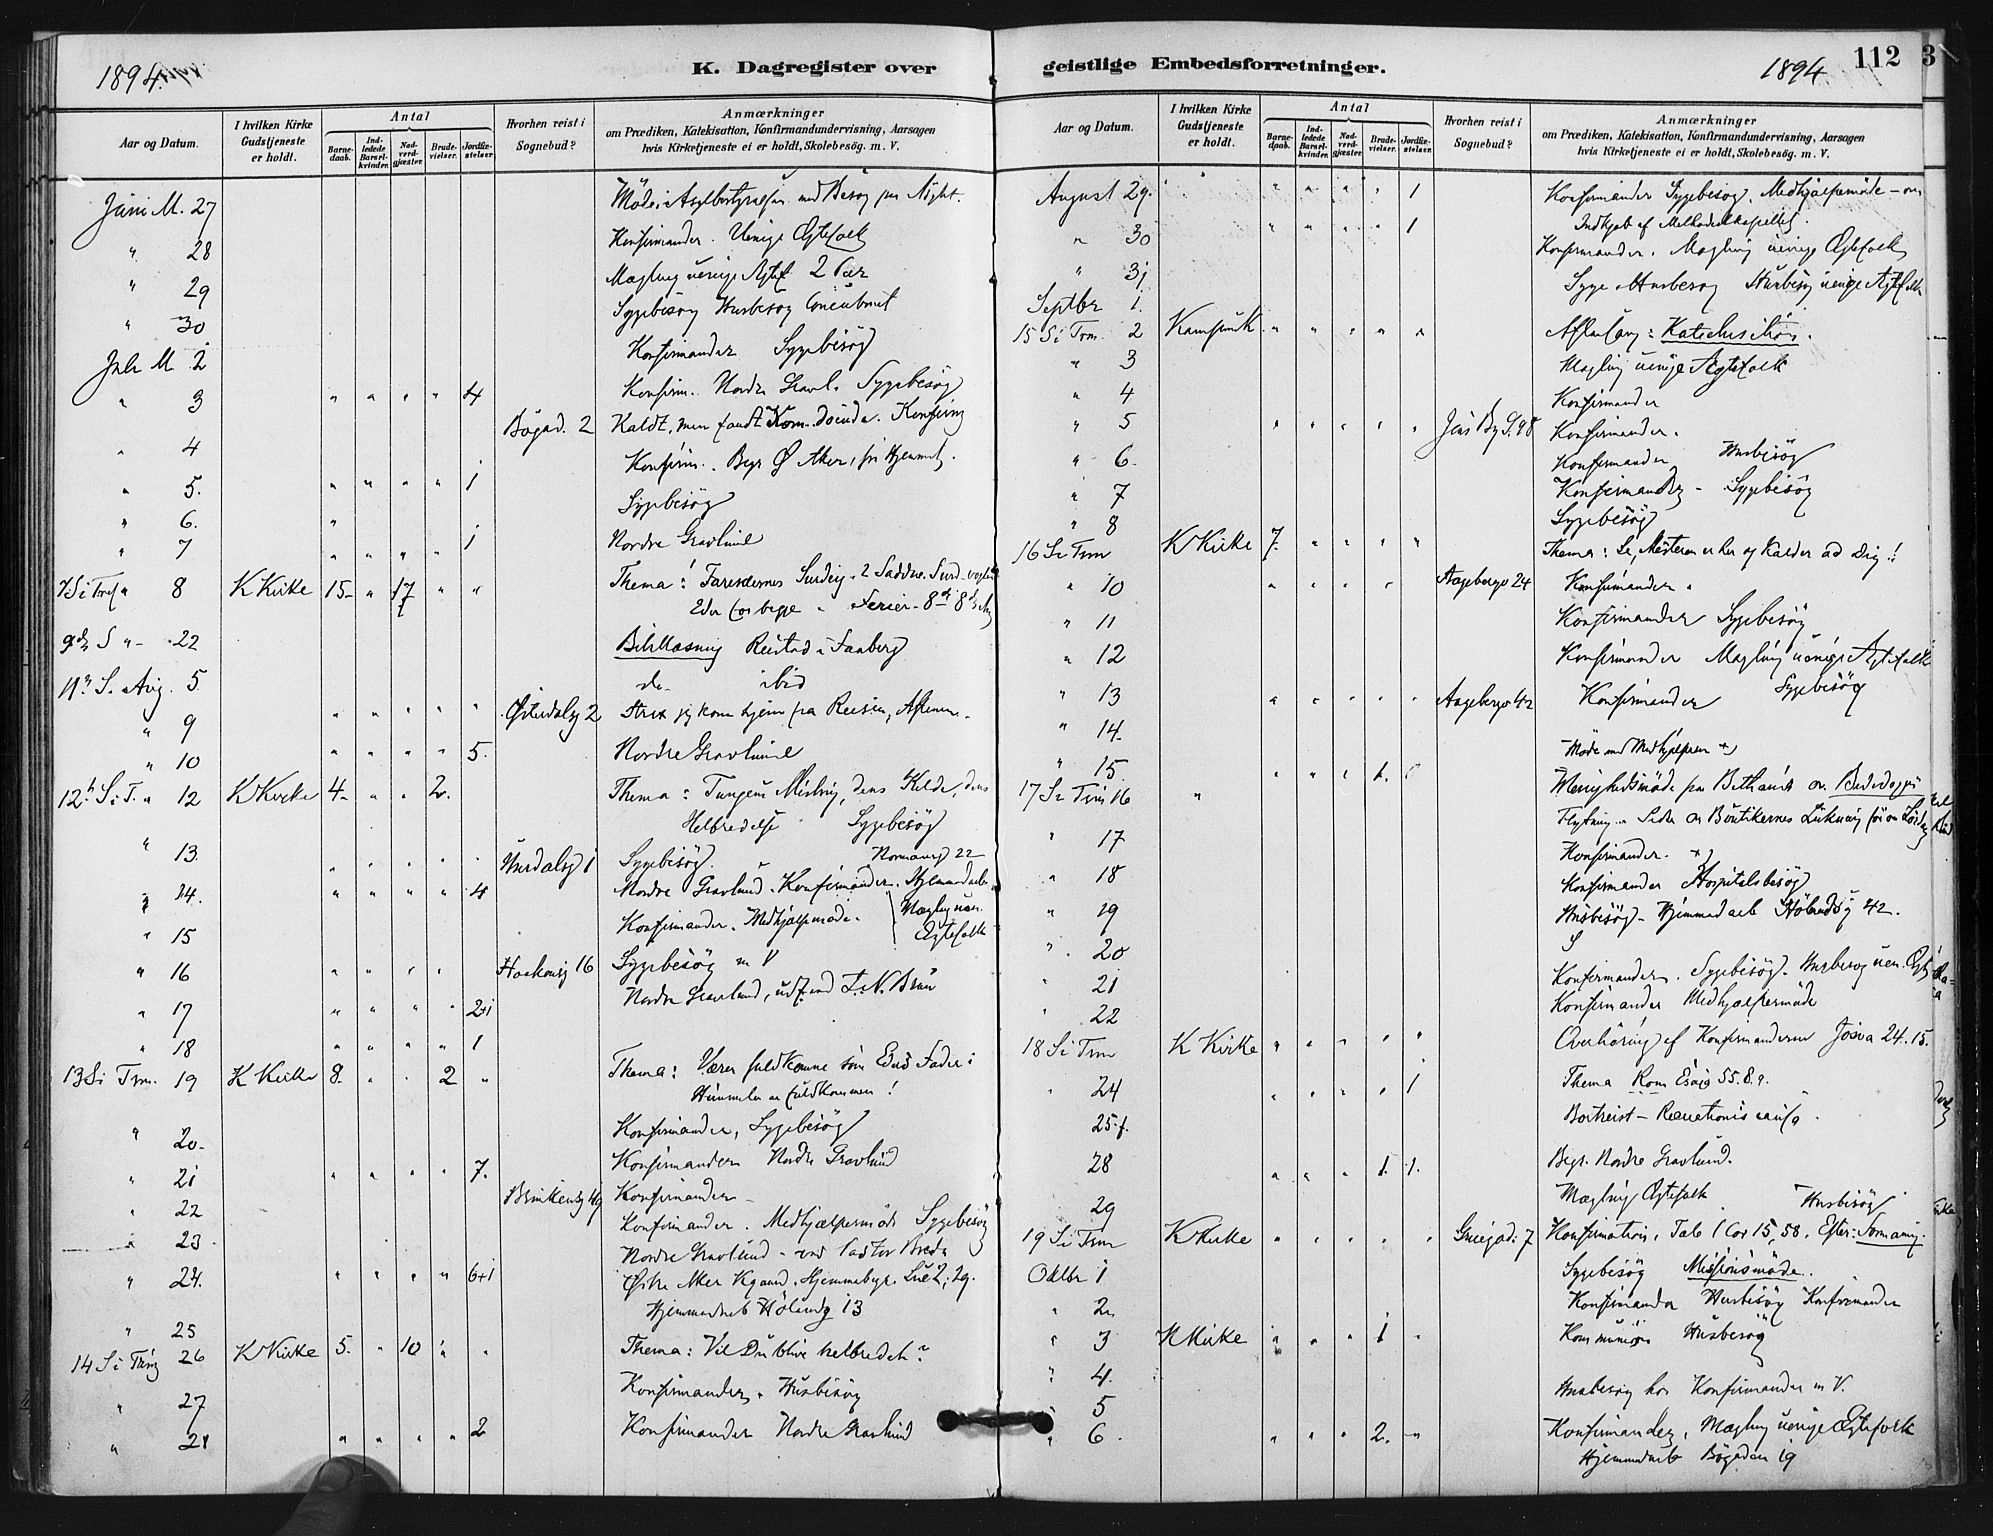 1894.
K. Dagregister over
Aar og Datum.
I hvilken Kirke Gudstjeneste er holdt.
Antal
Barnedaab.
Indledede Barselkvinder.
Nadverdgjæster.
Brudevielser.
Jordfæstelser.
Hvorhen reist i Sognebud?
Anmærkninger
om Prædiken, Katekisation, Konfirmandundervisning, Aarsagen
hvis Kirketjeneste ei er holdt, Skolebesög. m. V.
Juni M. 27 Möde i med Besög
" 28 Konfirmander. Uenige Ægtefolk
" 29 Mægling uenige Ægtef 2 Par
" 30 Sygebesög Husbesög Concubinat
Juli M 2 Konfirmander Sygebesög
" 3 " " " " 4 Konfirm. Nordre Gravl. Sygebesög
Bögad. 2 Kaldt, men fandt Kom. döende.
" 4 Konfirm. Begr Ø Aker, fri Hjemmet.
" 5. " " " " 1
" 6. " Sygebesög
" 7 " " " " 1 Nordre Gravlund
8 K Kirke 15 " 17 " " Thema: Farisæernes Surdeig
Eder for begge " Ferier 8de
9de S " 22 Bibellæsning Reistad i Faaberg
11te S. Aug. 5 do. ibid
" 9 " " " " " Østerdalsg 2 Strax jeg kom hjem fra Reisen, Aftenen.
" 10 " " " " 5. Nordre Gravlund
12te S. T. " 12 K Kirke 4 " " 2. Thema: Tungens Misbrug, dens Kilde, dens
Helbredelse Sygebesög
" 13. " " " " " Hurdalsg 1 Sygebesög. Normannsg 22
14. " " " " 4 Nordre Gravlund. Konfirmander. Hjemmedaab
" 15 Konfirmander. Medhjælpermöde. Mægling uen. Ægtefolk
" 16 " " " " Haakonsg 16 Sygebesög m V
" 17 " " " " 2+1 Nordre Gravlund,
" 18 " " " " 1
13 S. i Trin. 19 K Kirke 8. " " 2 " Thema: Værer fuldkomne som Eders Fader i
Himmelen er fuldkommen!
" 20. Konfirmander, Sygebesög
" 21 " " " " 7. Konfirmander Nordre Gravlund
" 22 Brinkensg 49 Konfirmander
" 23 Konfirmander. Medhjælpermöde Sygebesög
" 24. " " " " 6+1 Nordre Gravlund - ved Pastor Breda
Østre Aker Kgaard. Hjemmebegr. Luc 2, 29.
" 25 Hjemmedaab Hölandsg 13
14 S. i Trin 26 K Kirke 5. " 10 " " Thema: Vil Du blive helbredet?
" 27 Konfirmander. Husbesög
" 28 " " " " 2 Konfirmander Nordre Gravlund
geistlige Embedsforretninger.
1894
112
3
Aar og Datum.
I hvilken Kirke Gudstjeneste er holdt.
Antal
Barnedaab.
Indledede Barselkvinder.
Nadverdgjæster.
Brudevielser.
Jordfæstelser.
Hvorhen reist i Sognebud?
Anmærkninger
om Prædiken, Katekisation, Konfirmandundervisning, Aarsagen
hvis Kirketjeneste ei er holdt, Skolebesög. m. V.
August 29. " " " " 1 Konfirmander Sygebesög. Medhjælpermöde - om
Indkjøb af Methodistkapellet.
" 30 " " " " 1 Konfirmander. Mægling uenige Ægtefolk
" 31 Syge Husbesög Husbesög uenige Ægtefolk
Septbr 1.
15 S. i Trin. 2 Kampenk " " " " " Aftensang: Katechisation.
" 3 Mægling uenige Ægtefolk
" 4 Konfirmander
" 5 " " " " " Konfirmander.
" 6. Konfirmander Husbesög
" 7 Konfirmander - Sygebesög
" 8 Sygebesög
16 S. i Trin K Kirke 7 " " " " Thema: Se, Mesteren er her og kalder ad Dig!
" 10 " " " " Aagebergv 24 Konfirmander.
" 11 Konfirmander Sygebesög
" 12 Konfirmander Mægling uenige Ægtefolk
" 13 " " " " " Aagebergv 42 Konfirmander Sygebesög
" 14. Möde med Medhjælperne
" 15. " " " 1. Menighedsmöde paa Bethania
17 S. i Trin 16 " Flytning Boutikernes Lukning
" 17 Konfirmander.
" 18 Konfirmander Hospitalsbesög
" 19 Husbesög - Hjemmedaab Hölandsg 42.
" 20 S
" 21 Konfirmander. Sygebesög. Husbesög uen. Ægt
" 22 Konfirmander Medhjælpermöde
18 S. i Trin K Kirke " " " " " Overhöring af Konfirmanderne Josva 24.15.
24 " " " " 1 Thema Esaias 55.8.9.
25 f. Bortreist - Recreationis causa.
28 " " " 1. 1. Begr. Nordre Gravlund.
29 Mægling Ægtefolk Husbesög
19 S. i Trin K Kirke " " " " " 7 Konfirmation. Tale 1 Cor 15, 58. Efter: Formaning.
Oktbr 1 Sygebesög Missionsmöde.
" 2 Konfirmander Husbesög Konfirmander
" 3 K Kirke " " " 1 " Kommunion Husbesög
" 4.
" 5 Husbesög hos Konfirmander m V.
" 6. " " " 2. " Konfirmander, Mægling uenige Ægtefolk
Hjemmedaab Bögaden 19